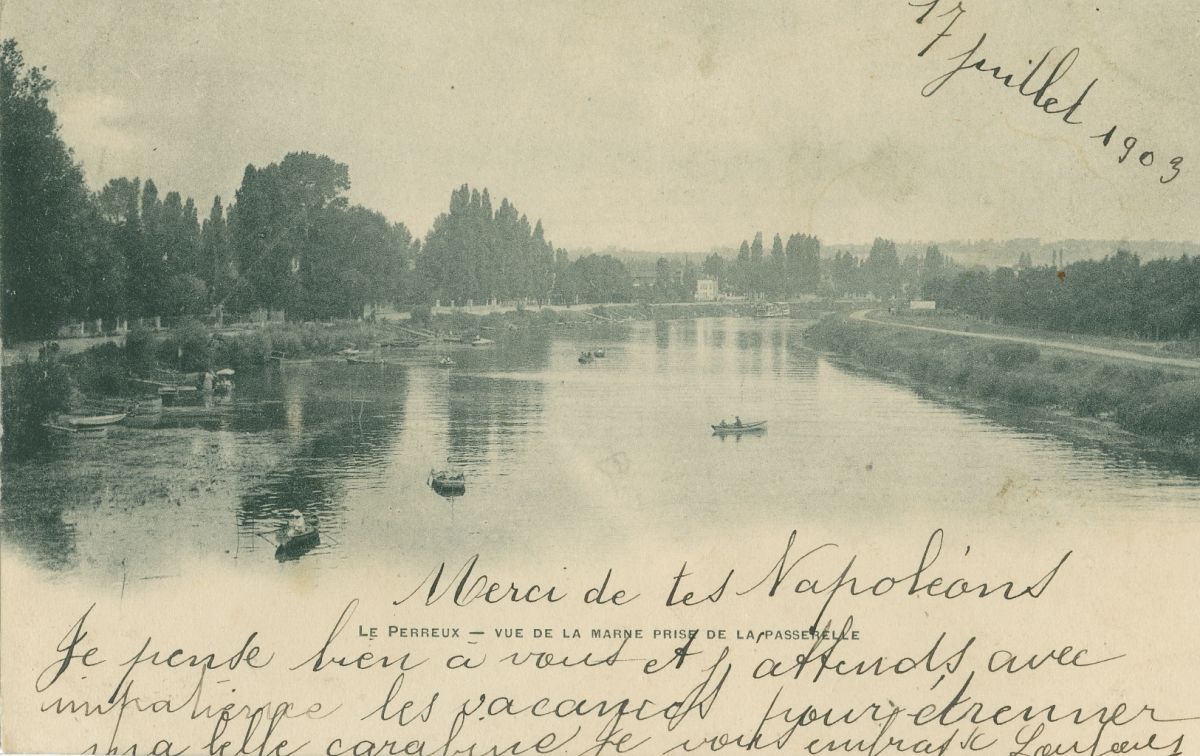 17 Juillet 1903
Merci de tes Napoléons
LE PERREUX — VUE DE LA MARNE PRISE DE LA PASSERELLE
Je pense bien à vous et j'attends avec
impatience les vacances pour étrenner
ma belle carabine Je vous embrasse